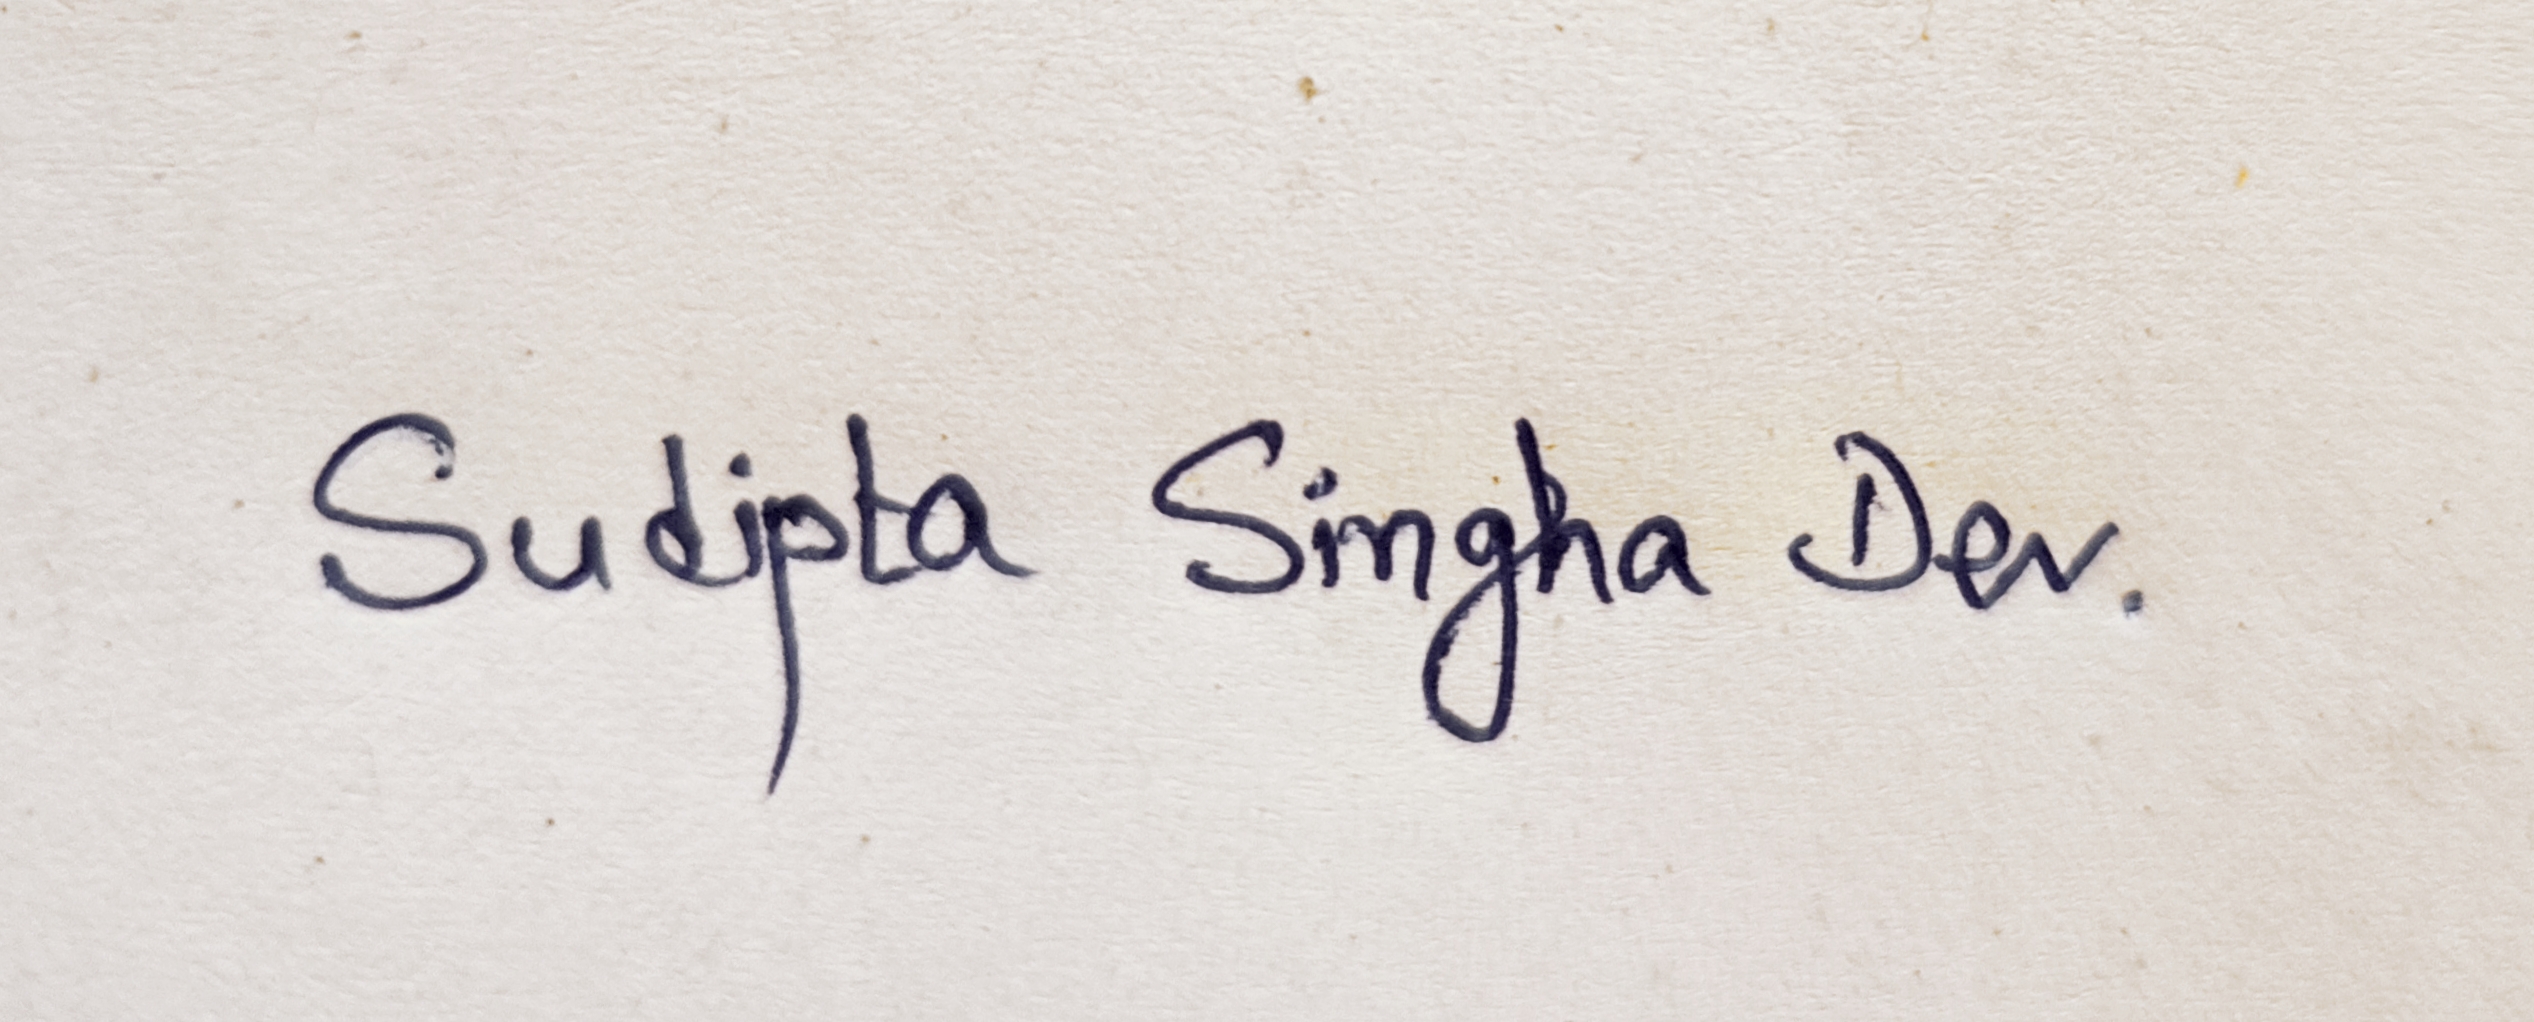 Sudipta Singha Dev.